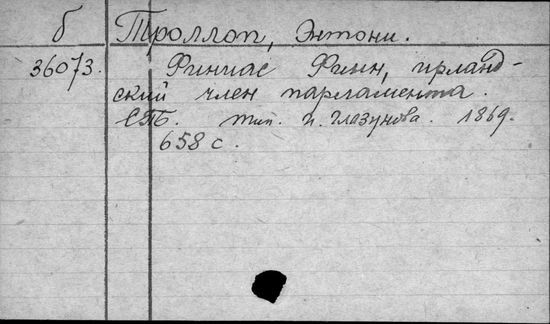 б Троллоп, Энтони.
36073. Финиас Финн, ирланд-
ский член парламента.
СПБ. тип. И. Глазунова. 1869.
658 с.